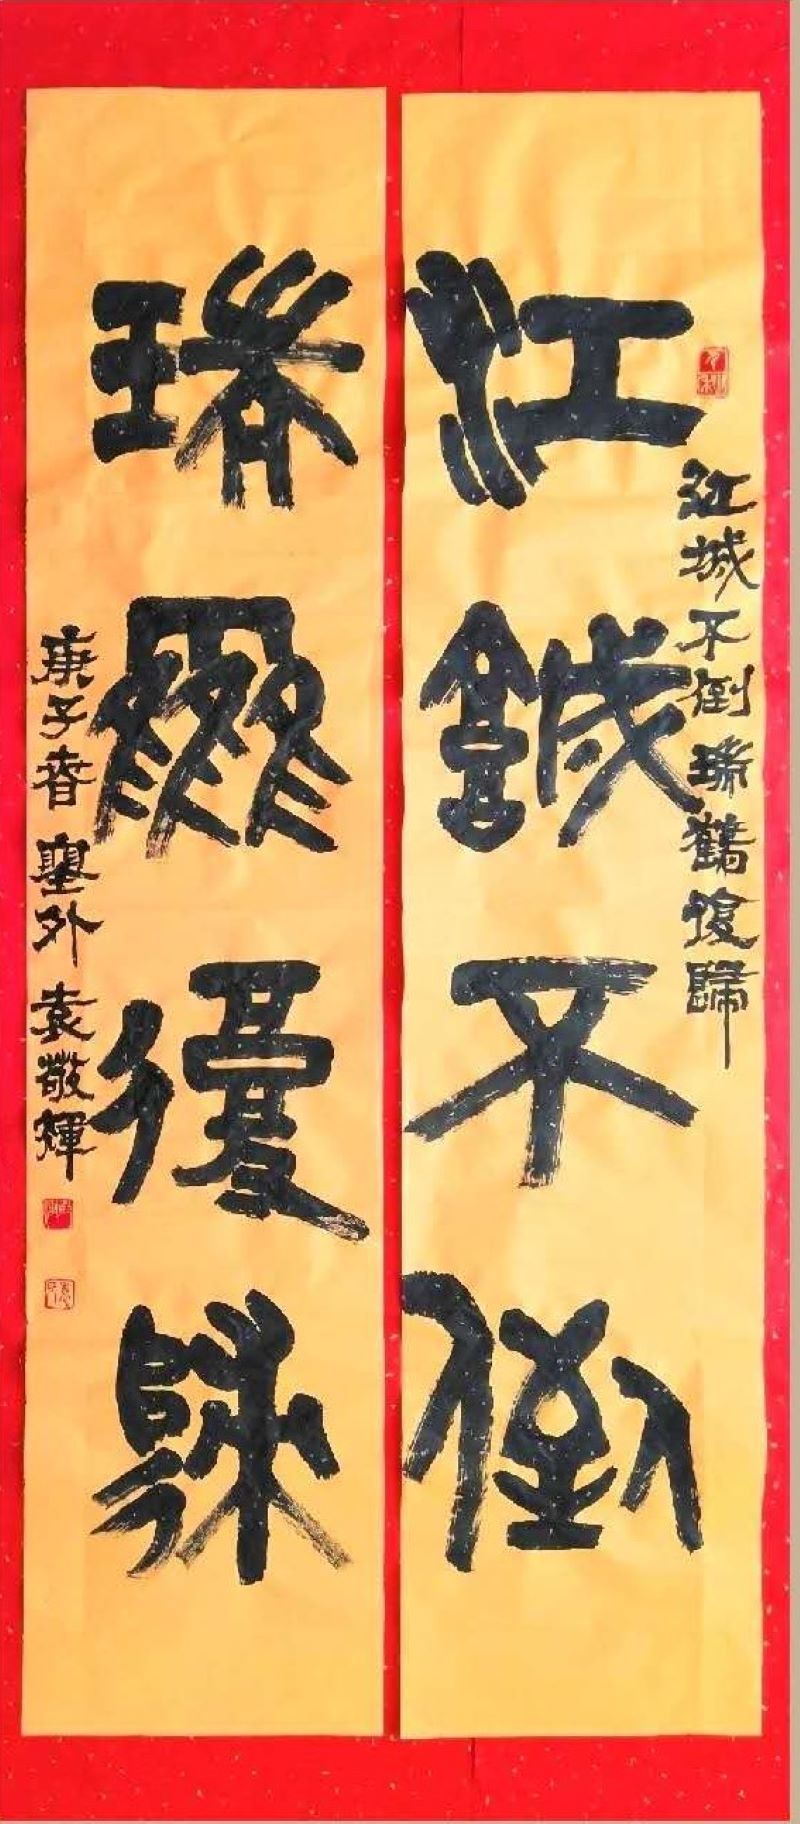 江城不倒
江城不倒瑞鹤復歸
瑞鹤復歸
庚子春塞外袁敬輝